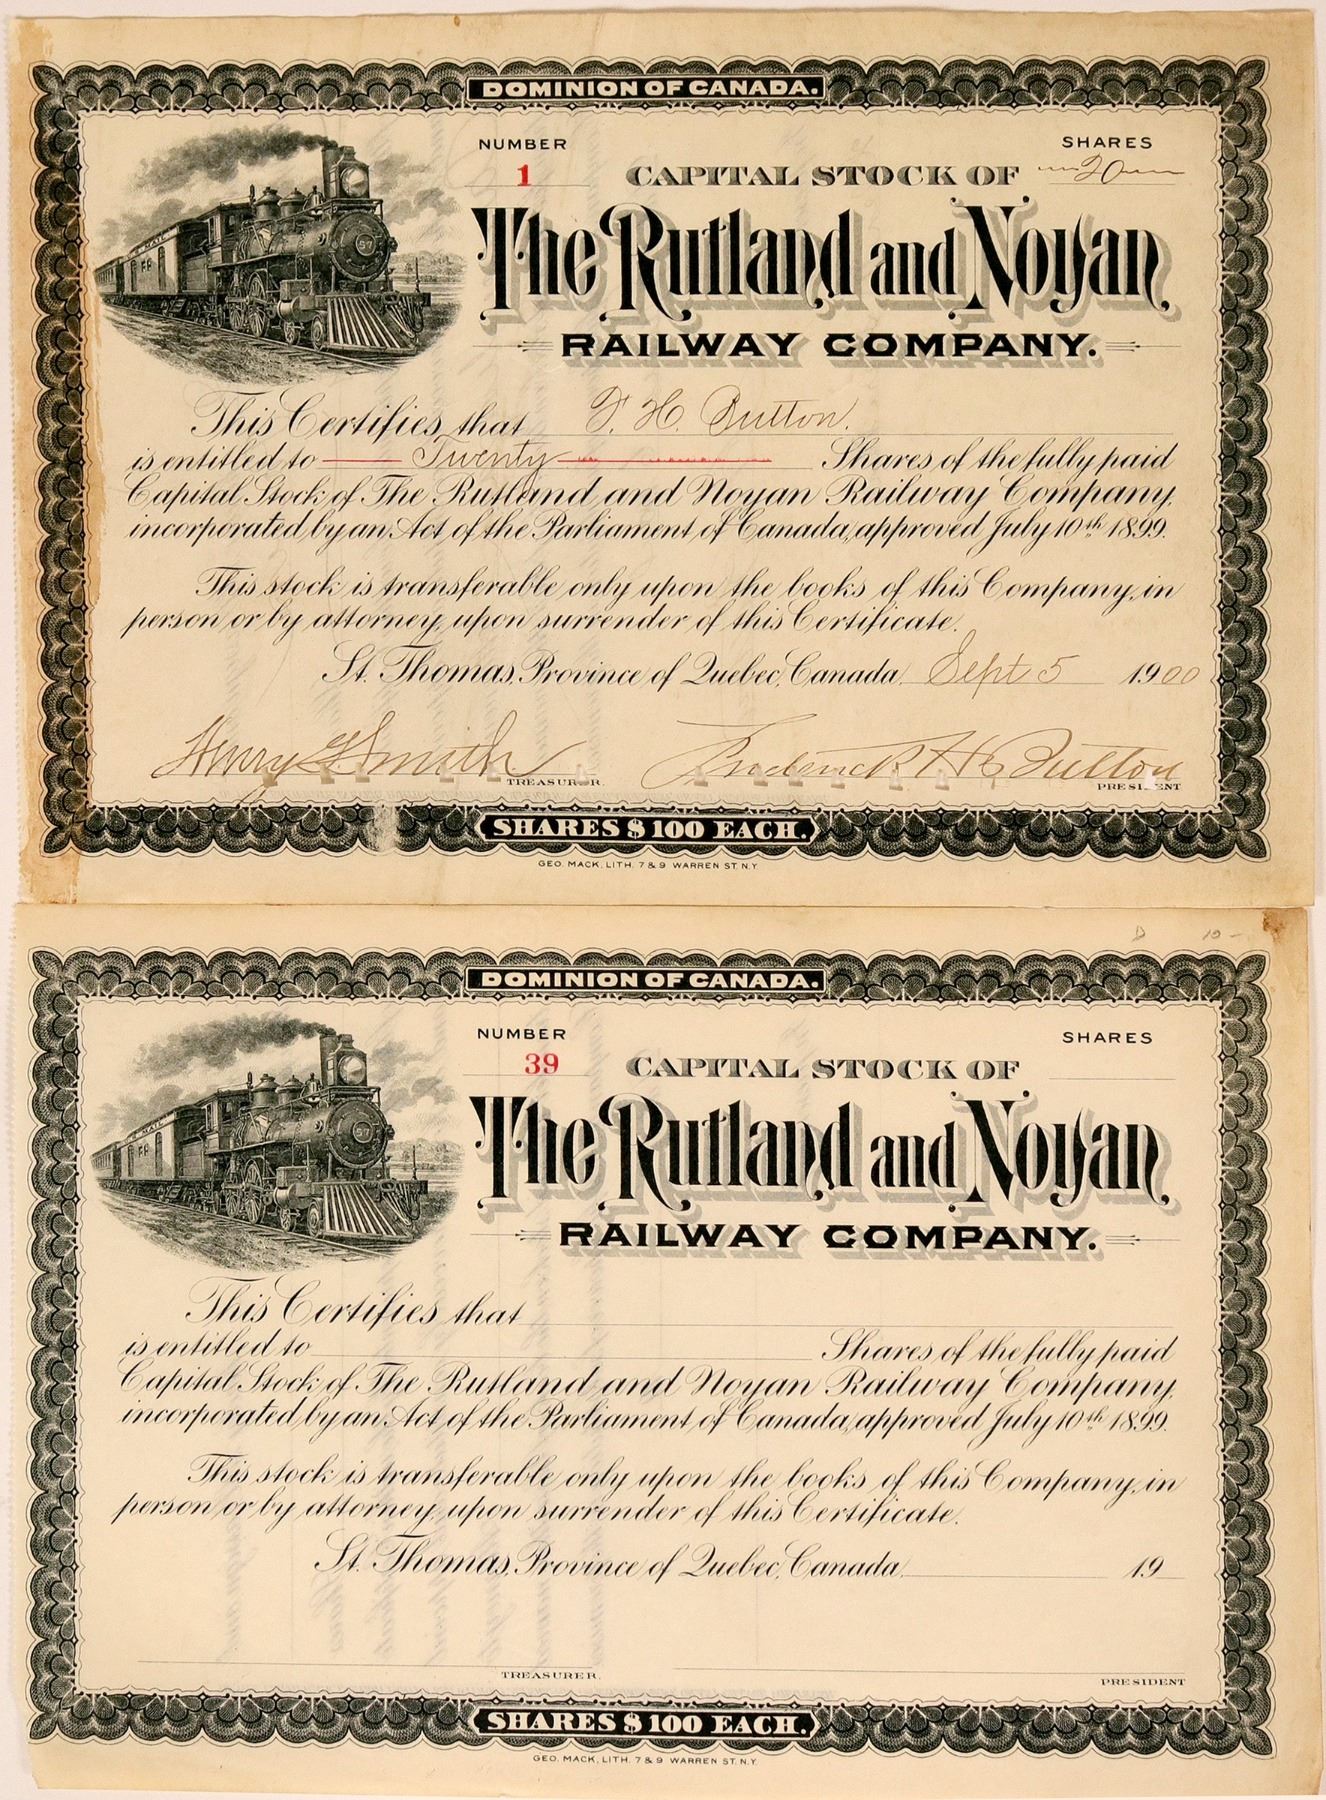 DOMINION OF CANADA.
NUMBER
SHARES
1
CAPITAL STOCK OF
20
The Rutland and Noyan
RAILWAY COMPANY.
This Certifies that F. H. Button.
is entitled to Twenty Shares of the fully paid
Capital Stock of The Rutland and Noyan Railway Company,
incorporated by an Act of the Parliament of Canada, approved July 10th 1899.
This stock is transferable only upon the books of this Company, in
person or by attorney, upon surrender of this Certificate.
St. Thomas, Province of Quebec, Canada, Sept 5 1900
Henry G. Smith
Frederick H. Button
TREASURER.
PRESIDENT
SHARES $100 EACH.
GEO. MACK, LITH. 7 & 9 WARREN ST. N.Y.
D 10 -
DOMINION OF CANADA.
NUMBER
SHARES
39
CAPITAL STOCK OF
The Rutland and Noyan
RAILWAY COMPANY.
This Certifies that
is entitled to Shares of the fully paid
Capital Stock of The Rutland and Noyan Railway Company,
incorporated by an Act of the Parliament of Canada, approved July 10th 1899.
This stock is transferable only upon the books of this Company, in
person or by attorney, upon surrender of this Certificate.
St. Thomas, Province of Quebec, Canada, 19
TREASURER.
PRESIDENT
SHARES $100 EACH.
GEO. MACK, LITH. 7 & 9 WARREN ST. N.Y.